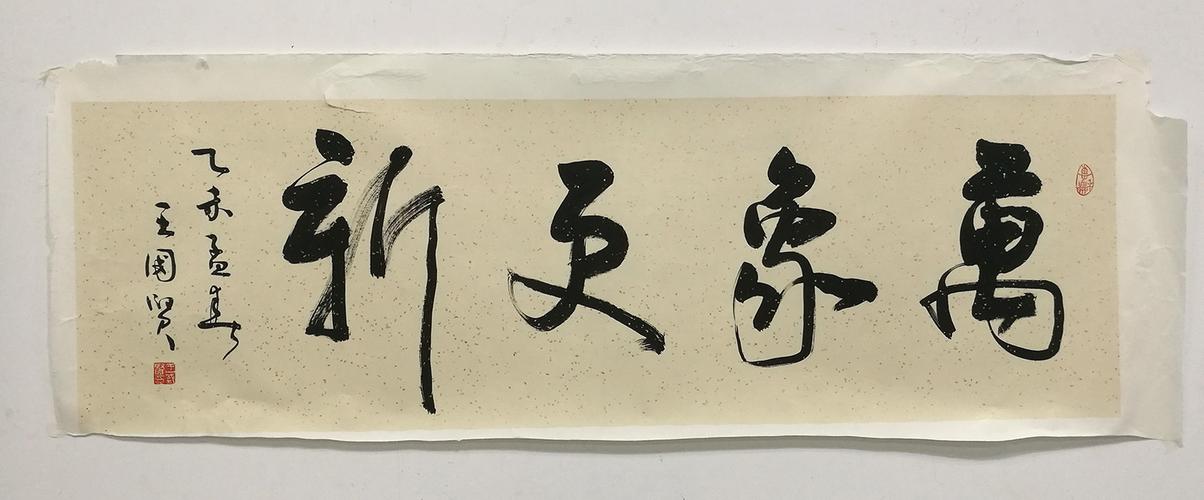 萬象更新
乙未孟春
王國賢